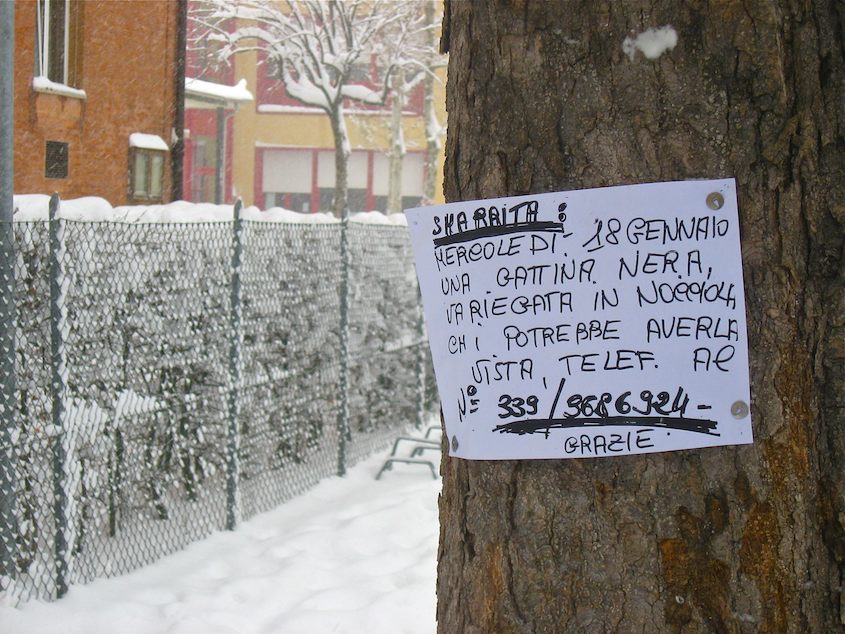 SMARRITA:
MERCOLEDÌ 18 GENNAIO
UNA GATTINA NERA,
VARIEGATA IN NOCCIOLA,
CHI POTREBBE AVERLA
VISTA, TELEF. Al
Nº 339/3686924-
GRAZIE